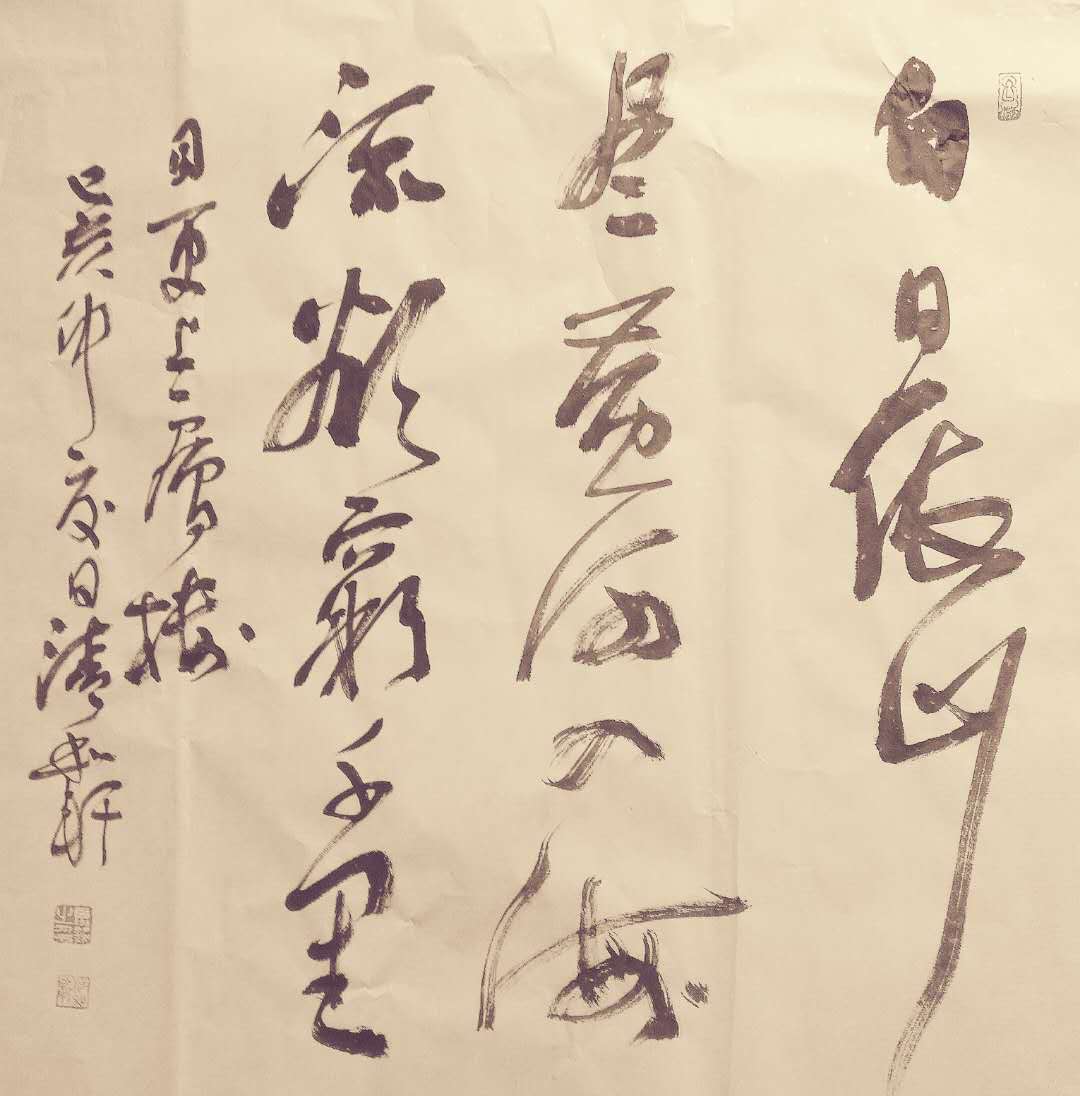 白日依山
尽黄河入海
流欲窮千里
目更上一層樓
己亥仲夏日清和軒